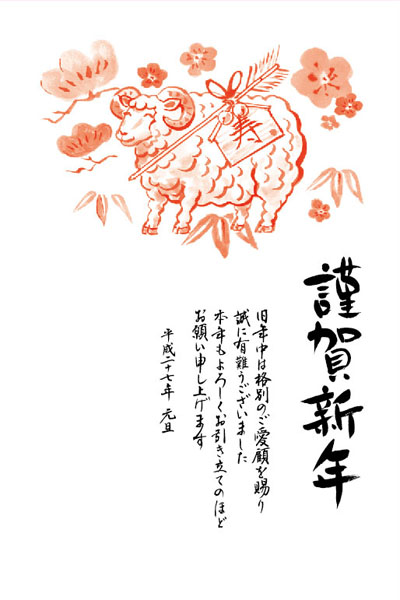 寿
謹賀新年
旧年中は格別のご愛顧を賜り
誠に有難うございました
本年もよろしくお引き立てのほど
お願い申し上げます
平成二十七年 元旦